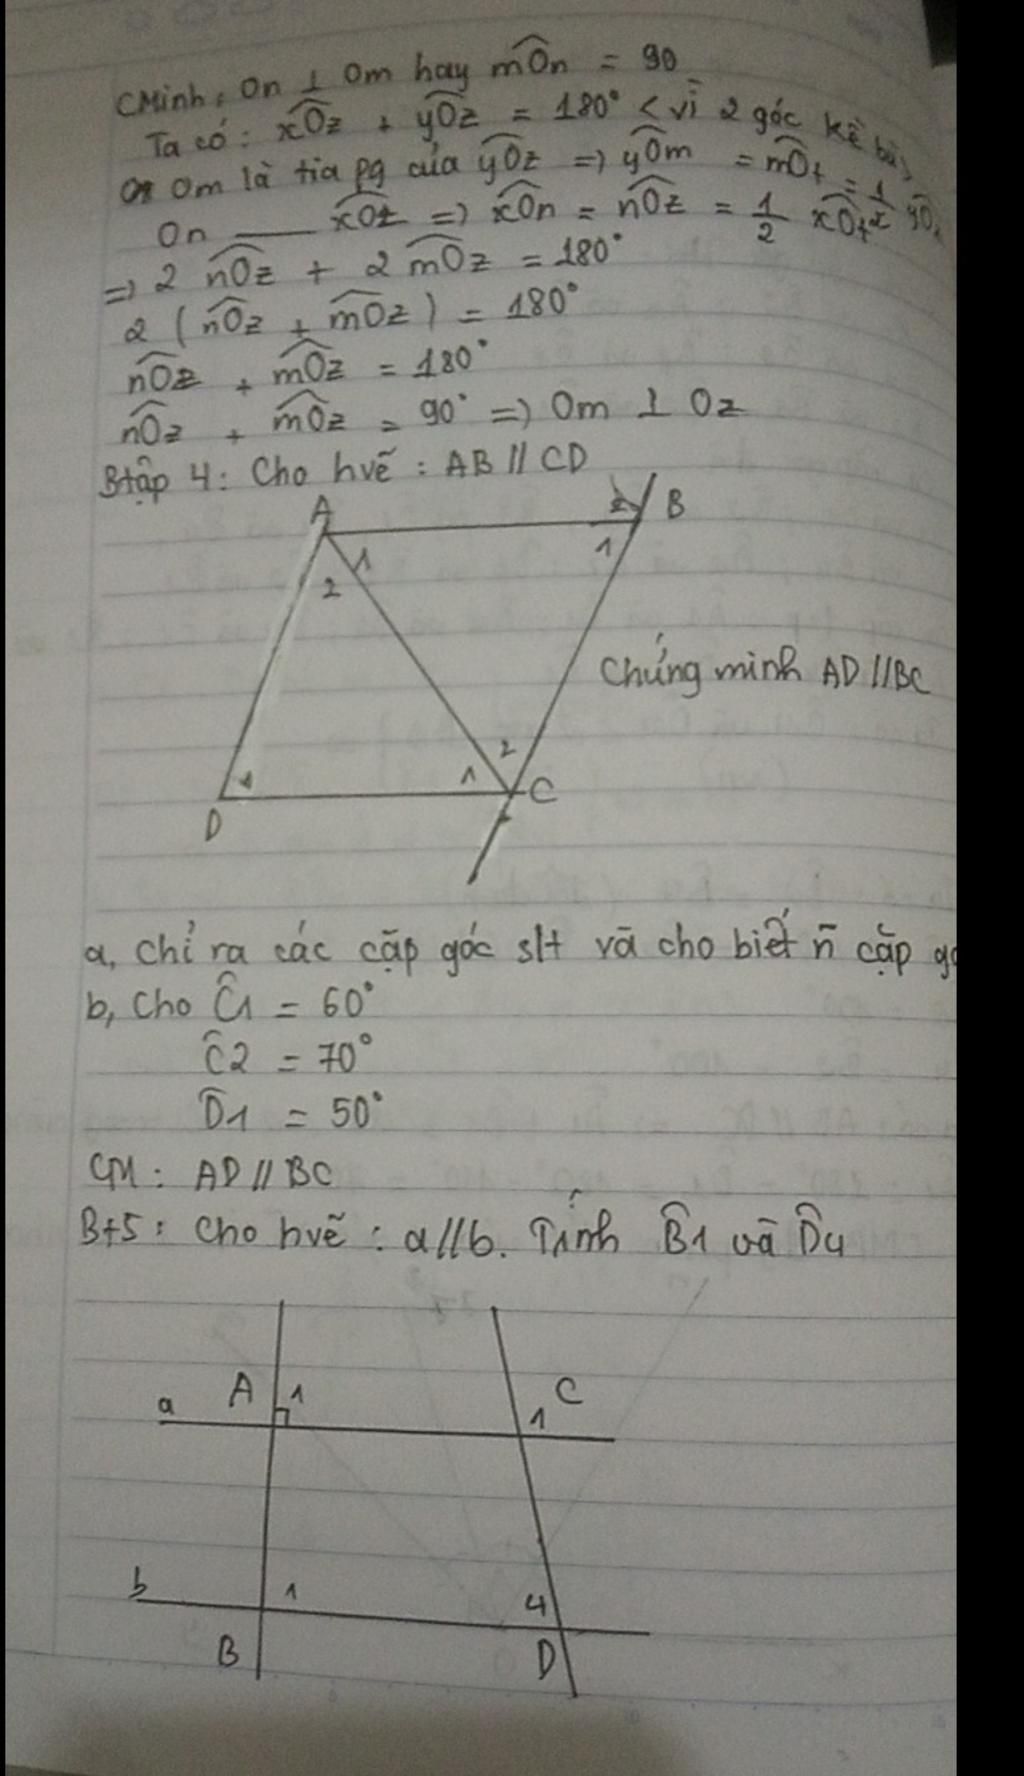 CMinh: On ⊥ Om hay mOn = 90
Ta có: xOz + yOz = 180° < vì 2 góc kề bù
Om là tia pg của yOz => yOm = mOt = 1/2 yOz
On —— xOz => xOn = nOz = 1/2 xOt
=> 2 nOz + 2 mOz = 180°
2 (nOz + mOz) = 180°
nOz + mOz = 180°
nOz + mOz = 90° => Om ⊥ Oz
Btập 4: Cho hvẽ: AB // CD
A
2
B
1
1
2
Chứng minh AD // BC
2
1
1
C
D
a, chỉ ra các cặp góc slt và cho biết n̄ cặp
b, Cho Ĉ1 = 60°
Ĉ2 = 70°
D̂1 = 50°
CM: AD // BC
Bt5: Cho hvẽ: a//b. Tính B̂1 và D̂4
A 1
C
a
1
b
1
4
B
D